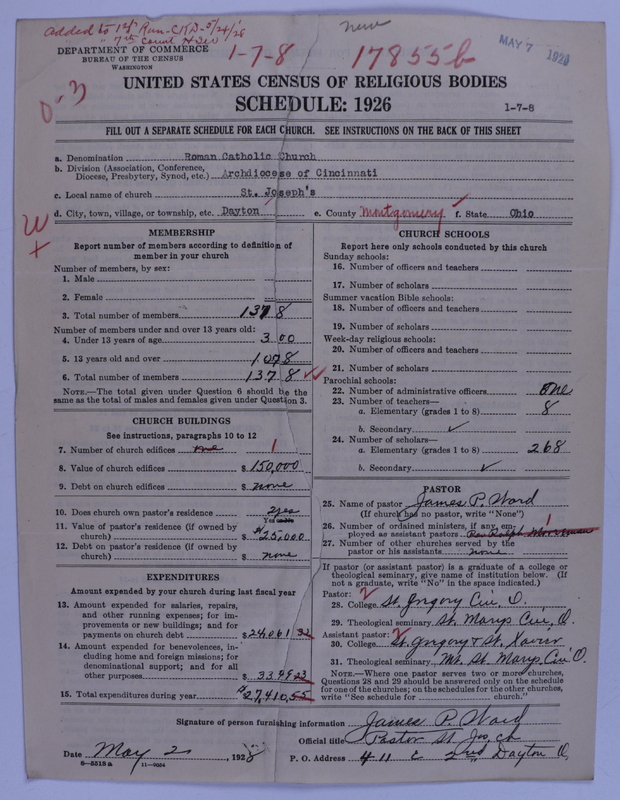 Added to 1st Run-CKD-5/24/28
" 7th Count
new
DEPARTMENT OF COMMERCE
BUREAU OF THE CENSUS
WASHINGTON
1-7-8
17855b
MAY 7 1928
UNITED STATES CENSUS OF RELIGIOUS BODIES
SCHEDULE: 1926
1-7-8
FILL OUT A SEPARATE SCHEDULE FOR EACH CHURCH. SEE INSTRUCTIONS ON THE BACK OF THIS SHEET
a. Denomination Roman Catholic Church
b. Division (Association, Conference, Diocese, Presbytery, Synod, etc.) Archdiocese of Cincinnati
c. Local name of church St. Joseph's
d. City, town, village, or township, etc. Dayton e. County Montgomery f. State Ohio
MEMBERSHIP
Report number of members according to definition of
member in your church
Number of members, by sex:
1. Male
2. Female
3. Total number of members 1378
Number of members under and over 13 years old:
4. Under 13 years of age 300
5. 13 years old and over 1078
6. Total number of members 1378
NOTE.—The total given under Question 6 should be the
same as the total of males and females given under Question 3.
CHURCH BUILDINGS
See instructions, paragraphs 10 to 12
7. Number of church edifices one 1
8. Value of church edifices $150,000
9. Debt on church edifices $ none
10. Does church own pastor's residence yes
Yes or No
11. Value of pastor's residence (if owned by
church) $ 25,000
12. Debt on pastor's residence (if owned by
church) $ none
EXPENDITURES
Amount expended by church during last fiscal year
13. Amount expended for salaries, repairs,
and other running expenses; for im-
provements or new buildings; and for
payments on church debt $24,061 32
14. Amount expended for benevolences, in-
cluding home and foreign missions; for
denominational support; and for all
other purposes $ 3349 23
15. Total expenditures during year $27,410.55
CHURCH SCHOOLS
Report here only schools conducted by this church
Sunday schools:
16. Number of officers and teachers
17. Number of scholars
Summer vacation Bible schools:
18. Number of officers and teachers
19. Number of scholars
Week-day religious schools:
20. Number of officers and teachers
21. Number of scholars
Parochial schools:
22. Number of administrative officers one
23. Number of teachers—
a. Elementary (grades 1 to 8) 8
b. Secondary ✓
24. Number of scholars—
a. Elementary (grades 1 to 8) 268
b. Secondary ✓
PASTOR
25. Name of pastor James P. Ward
(If church has no pastor, write "None")
26. Number of ordained ministers, if any, em-
ployed as assistant pastors 1 Rev Ralph
27. Number of other churches served by the
pastor or his assistants none
If pastor (or assistant pastor) is a graduate of a college or
theological seminary, give name of institution below. (If
not a graduate, write "No" in the space indicated.)
Pastor:
28. College St. Gregory Cin, O.
29. Theological seminary St. Marys Cin, O.
Assistant pastor:
30. College St. Gregory & St. Xavier
31. Theological seminary Mt. St. Marys Cin. O.
NOTE.—Where one pastor serves two or more churches,
Questions 28 and 29 should be answered only on the schedule
for one of the churches; on the schedules for the other churches,
write "See schedule for church."
Signature of person furnishing information James P. Ward
Official title Pastor St Jos. Ch
Date May 2, 1928
P. O. Address 411 E 2nd Dayton O.
8-5318a 11-9034